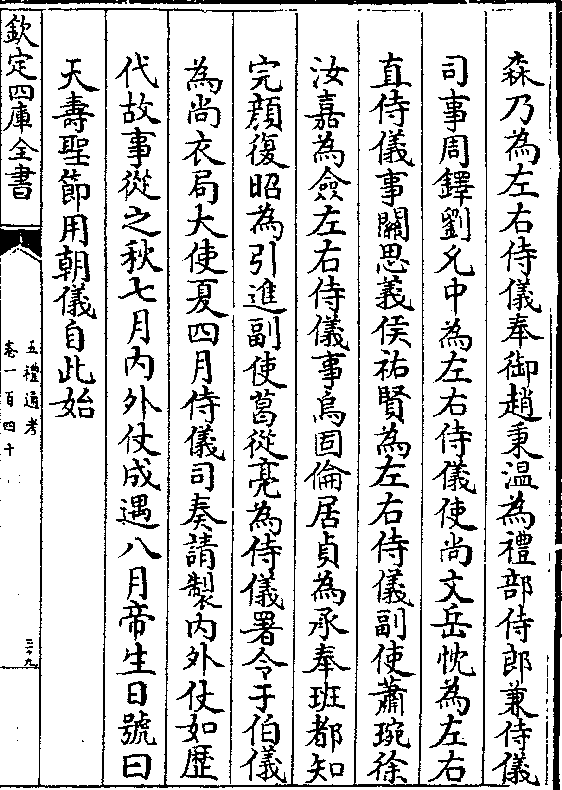 森乃為左右侍儀奉御趙秉温為禮部侍郎兼侍儀
司事周鐸劉允中為左右侍儀使尚文岳忱為左右
直侍儀事關思義侯祐賢為左右侍儀副使蕭琬徐
汝嘉為僉左右侍儀事烏固倫居貞為承奉班都知
完顔復昭為引進副使葛從亮為侍儀署令于伯儀
為尚衣局大使夏四月侍儀司奏請製内外仗如歴
代故事從之秋七月内外仗成遇八月帝生日號曰
天壽聖節用朝儀自此始
欽定四庫全書
五禮通考
卷一百四十
三十九